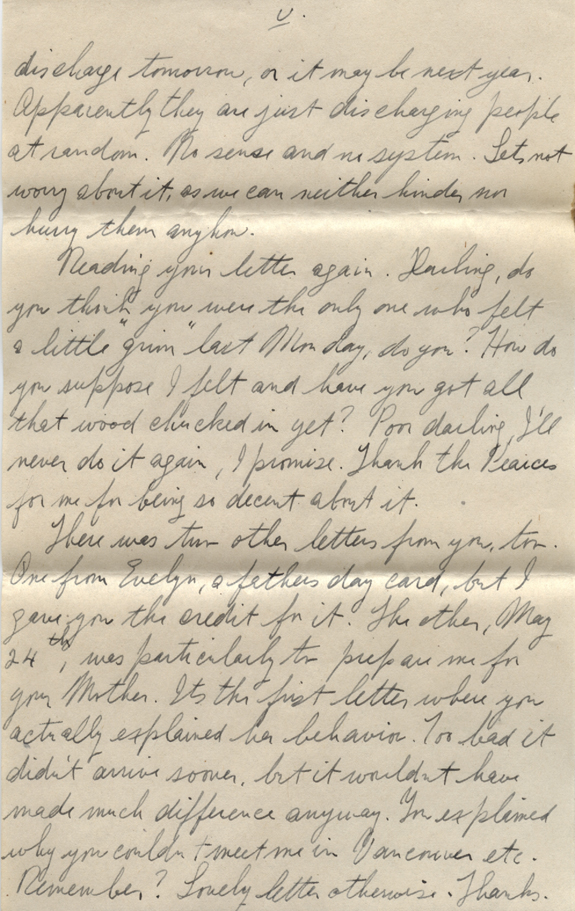 V.
discharge tomorrow, or it may be next year.
Apparently they are just discharging people
at random. No sense and no system. Lets not
worry about it, as we can neither hinder nor
hurry them anyhow.
Reading your letter again. Darling, do
you think you were the only one who felt
a little "grim" last Monday, do you? How do
you suppose I felt and have you got all
that wood chucked in yet? Poor darling, I'll
never do it again, I promise. Thank the Pearces
for me for being so decent about it.
There was two other letters from you, too.
One from Evelyn, a fathers day card, but I
gave you the credit for it. The other, May
24th, was particularly to prepare me for
your Mother. Its the first letter where you
actually explained her behavior. Too bad it
didn't arrive sooner, but it wouldn't have
made much difference anyway. You explained
why you couldn't meet me in Vancouver etc.
Remember? Lovely letter otherwise. Thanks.